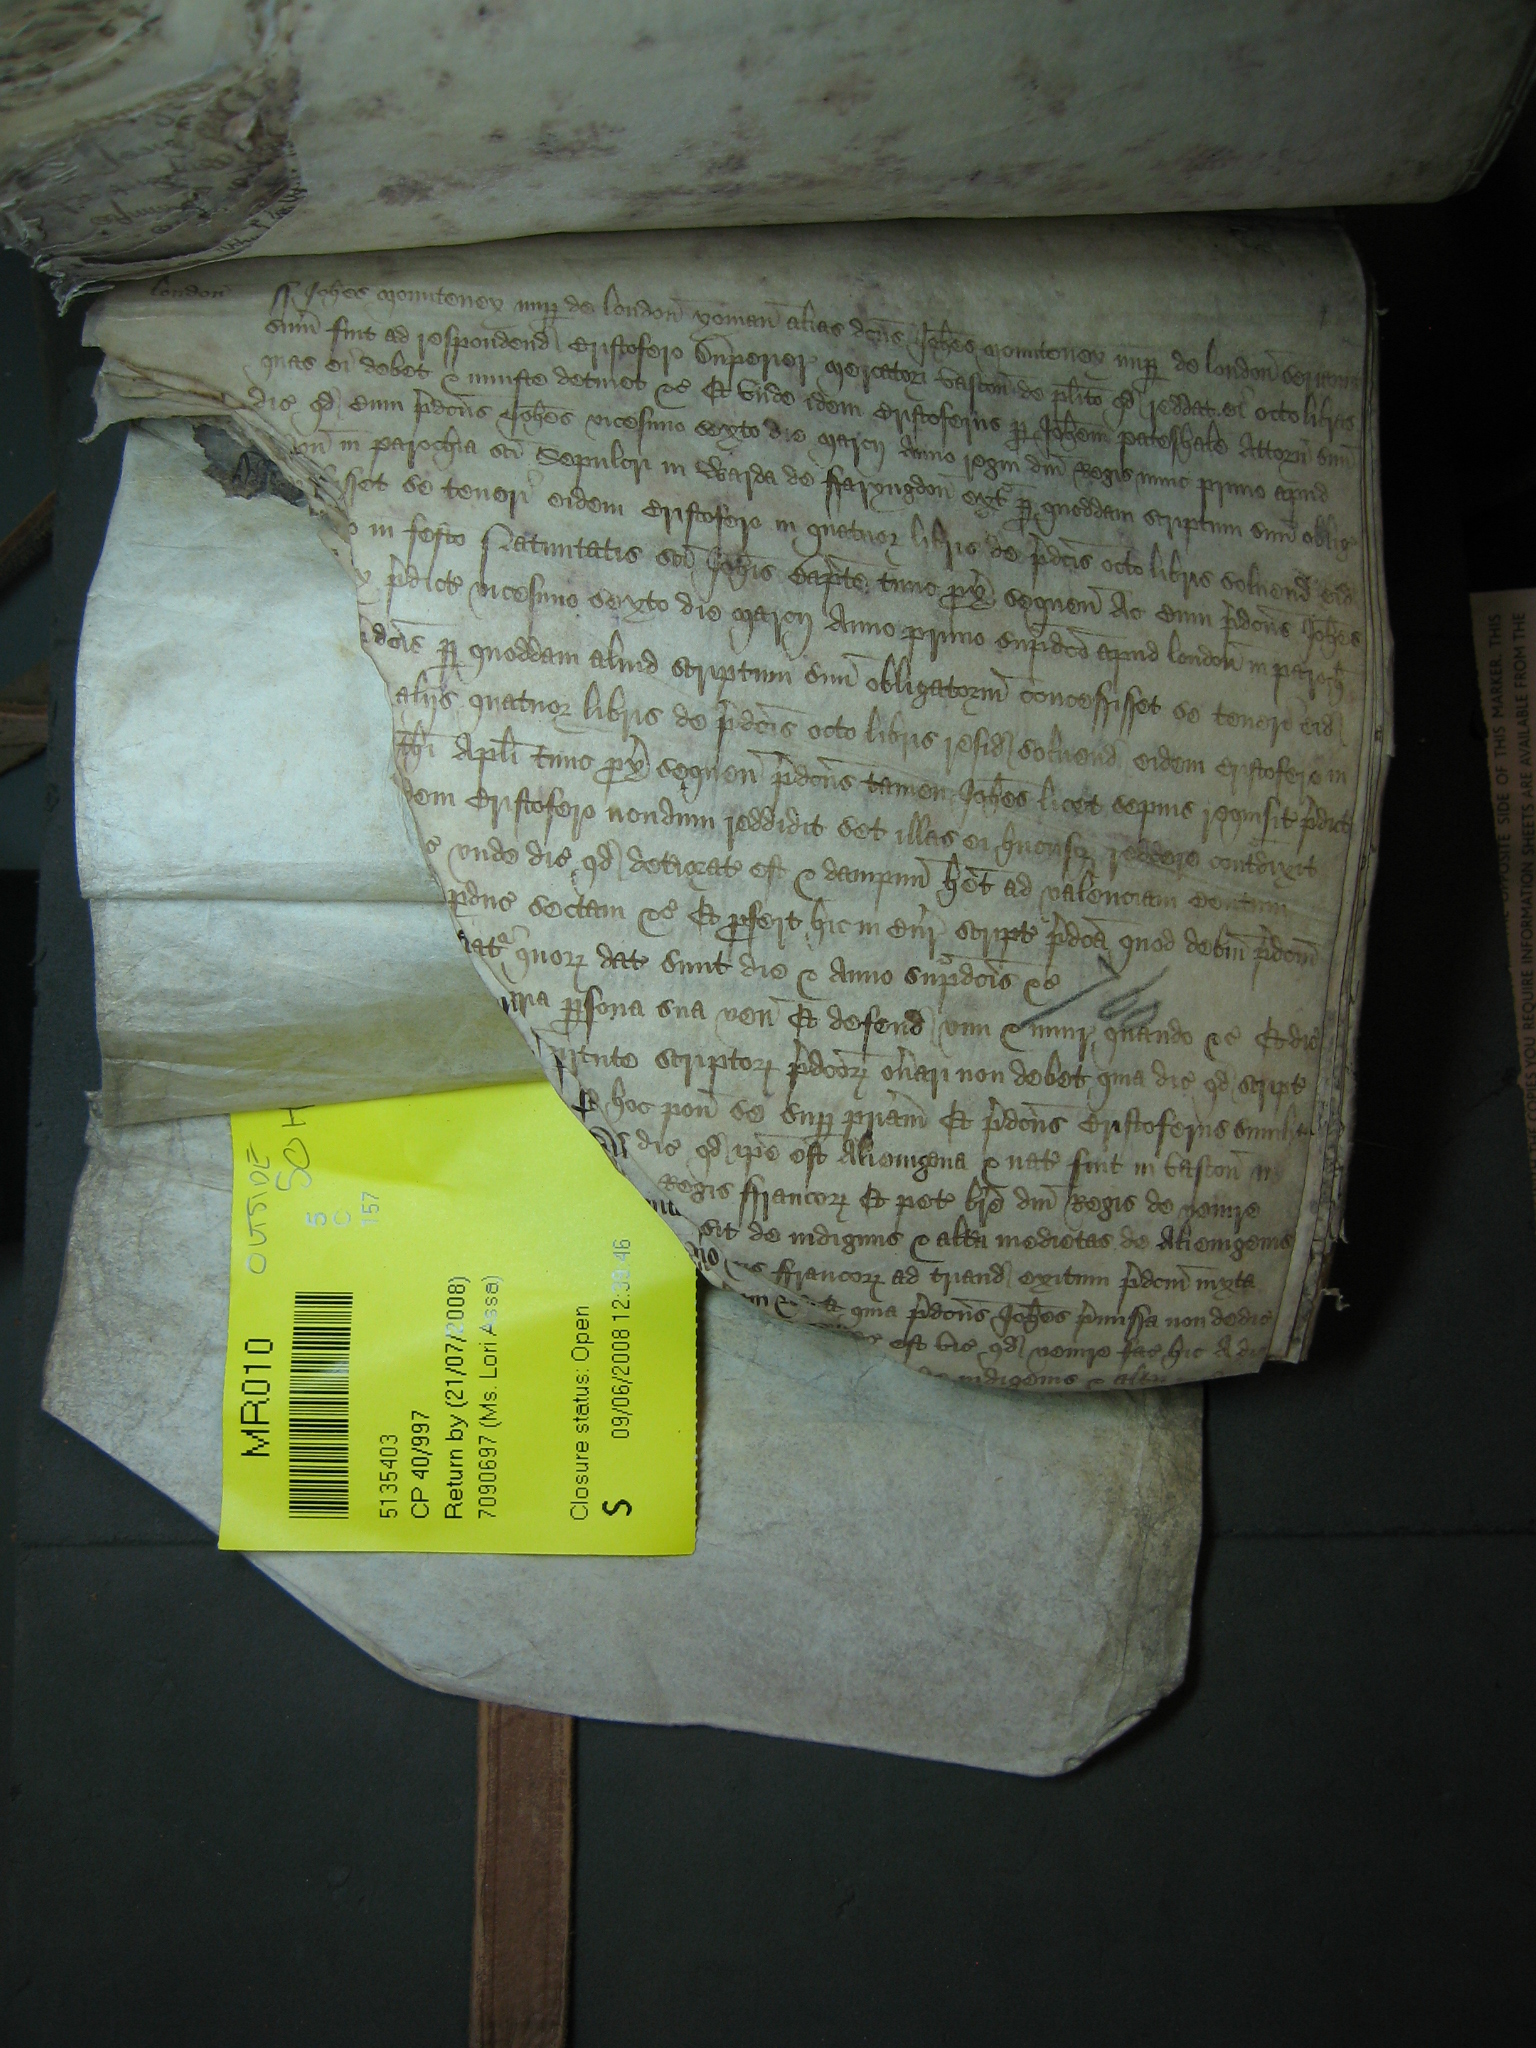 london
ss Joh̄es Mounteney nup̱ de london̄ yoman̄ alias dc̄us Joh̄es Mounteney nup̱ de london̄
sum̄ fuit ad respondend Cristofero Mercatori Vascon̄ de pl̄ito qd reddat ei octo libras
quas ei debet & iniuste detinet &c Et vnde idem Cristoferus p̱ Joh̄em Pateshale Attorn̄ suū
dic qd cum p̄dcūs Joh̄es vicesimo sexto die Marcij Anno regni dn̄i Regis nunc primo apud
on̄ in parochia sc̄i Sepulcri in Warda de ffaryngdon̄ extᵃ p̱ quoddam scriptum suū oblig
isset se teneri eidem Cristofero in quatuor libris de p̄dcīs octo libris soluend eid
o in festo Natiuitatis sc̄i Joh̄is Bapt̄e tunc p̱x̄ sequen̄ Ac cum p̄dcūs Joh̄es
p̄dict vicesimo sexto die Marcij Anno primo sup̄dc̄o apud london̄ in paroch
dcīs p̱ quoddam aliud scriptum suū obligatoriū concessisset se teneri eid
alijs quatuor libris de p̄dcīs octo libris resid soluend eidem Cristofero in
thī Apl̄i tunc p̱x̄ sequen̄ p̄dcūs tamen Joh̄es licet sepius requisit p̄dict
dem Cristofero nondum reddidit set illas ei hucusq reddere contᵃdixit
c vnde dic qd deteriorat est & dampnū h̄et ad valenciam Centum
p̱duc sectam &c Et p̱fert hic in Cur̄ script p̄dcā quod debitū p̄dcm̄
quoꝝ dat sunt die & Anno sup̄dcīs &c
p̱ria p̱sona sua ven̄ Et defend vim & iniur̄ quando &c Et dic
virtute scriptoꝝ p̄dcoꝝ on̄ari non debet quia dic qd script
Et hoc pon̄ se sup̱ pr̄iam Et p̄dcūs Cristoferus similit
dic qd ip̄e est Alienigena & nat fuit in Vascon̄
Regis ffrancoꝝ Et pet br̄e dn̄i Regis de venire
sit de indiginis & alt̄a medietas de Alienigenis
ffrancoꝝ ad triand exitum p̄dcm̄ iuxta
Et quia p̄dcūs Joh̄es p̄missa non dedic
est vic qd venire fac hic A die
indigenis &
OUTSIDE
5
C
157
MR010
5135403
CP 40/997
Return by (21/07/2008)
7090697 (Ms. Lori Assa)
Closure status: Open
S 09/06/2008 12:39:46
OPPOSITE SIDE OF THIS MARKER. THIS
YOU REQUIRE INFORMATION SHEETS ARE AVAILABLE FROM THE